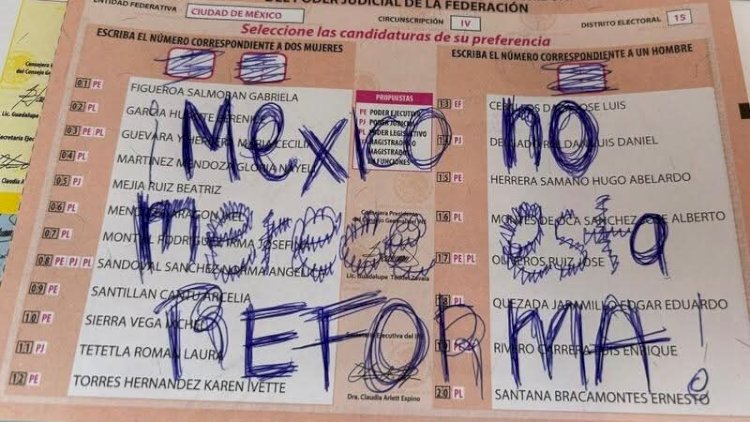 DEL PODER JUDICIAL DE LA FEDERACIÓN
ENTIDAD FEDERATIVA CIUDAD DE MÉXICO CIRCUNSCRIPCIÓN IV DISTRITO ELECTORAL 15
Seleccione las candidaturas de su preferencia
ESCRIBA EL NÚMERO CORRESPONDIENTE A DOS MUJERES
ESCRIBA EL NÚMERO CORRESPONDIENTE A UN HOMBRE
01 PE FIGUEROA SALMORAN GABRIELA
02 PL GARCIA
03 PE PL GUEVARA Y CECILIA
04 PL MARTINEZ MENDOZA GLORIA NAYELI
05 PJ MEJIA RUIZ BEATRIZ
06 PL
07 PL JOSEFINA
08 PE PJ PL SANDOVAL SANCHEZ NORMA ANGELICA
09 PE SANTILLAN CANTU ARCELIA
10 PE SIERRA VEGA
11 PJ TETETLA ROMAN LAURA
12 PE TORRES HERNANDEZ KAREN IVETTE
PROPUESTAS
PE PODER EJECUTIVO
PJ PODER JUDICIAL
PL PODER LEGISLATIVO
MAGISTRADO
MAGISTRADO
EN FUNCIONES
13 EF JOSE LUIS
14 PJ LUIS DANIEL
15 PE HERRERA SAMANO HUGO ABELARDO
16 PL MONTES DE OCA SANCHEZ ALBERTO
17 OLVEROS RUIZ JOSE
18 PL QUEZADA JARAMILLO EDGAR EDUARDO
RIVERO CARRERA LUIS ENRIQUE
20 PL SANTANA BRACAMONTES ERNESTO
Consejera Presidenta
del Consejo General del INE
Lic. Guadalupe Taddei Zavala
Secretaria Ejecutiva del INE
Dra. Claudia Arlett Espino
¡México no
merece esta
REFORMA!